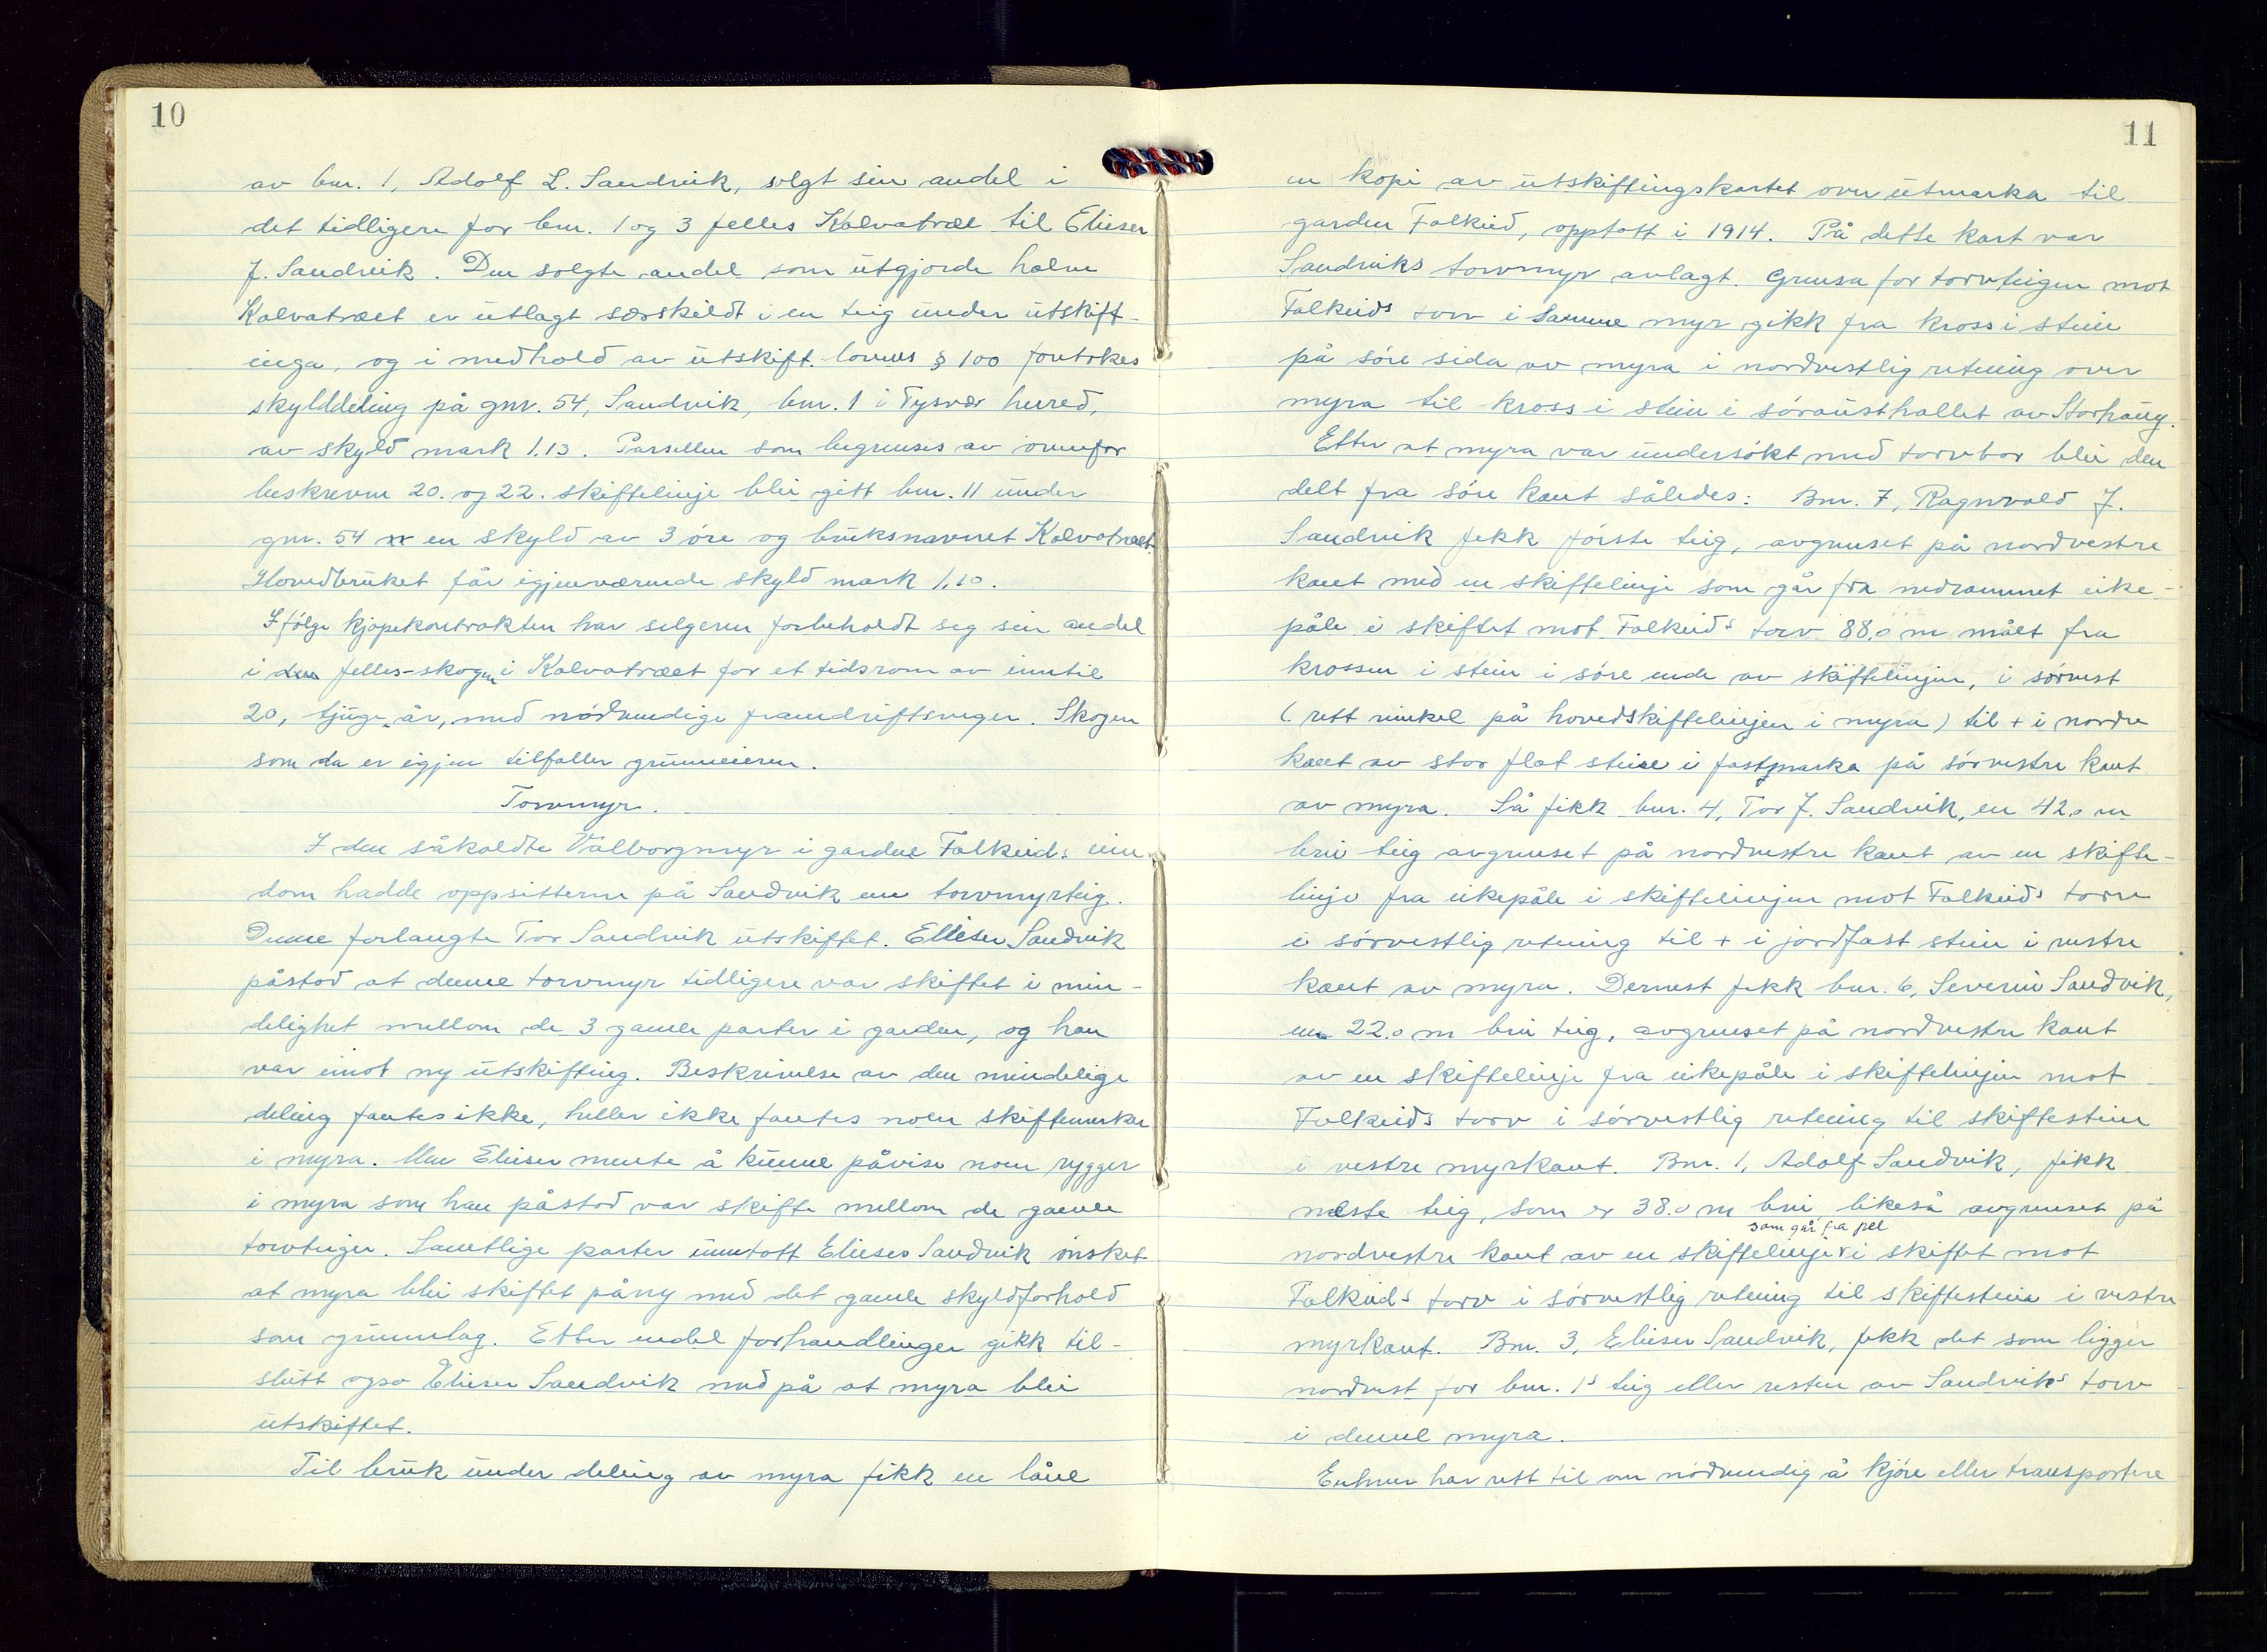 10
av bnr. 1, Adolf L. Sandvik, solgt sin andel i
det tidligere for bnr. 1 og 3 felles Kalvatræe til Elieser
J. Sandvik. Den solgte andel som utgjorde halve
Kalvatræet er utlagt særskildt i en teig under utskift-
inga, og i medhold av utskift. lovens § 100 foretokes
skylddeling på gnr. 54, Sandvik, bnr. 1 i Tysvær herred,
av skyld mark 1.13. Parsellen som begrenses av ovenfor
beskrevne 20. og 22. skiftelinje blei gitt bnr. 11 under
gnr. 54 en skyld av 3 øre og bruksnavnet Kalvatræet.
Hovedbruket får igjenværende skyld mark 1.10.
Ifølge kjøpekontrakten har selgeren forbeholdt seg sin andel
i felles-skogen i Kalvatræet for et tidsrom av inntil
20, tjuge, år, med nødvendige framdriftsveger. Skogen
som da er igjen tilfaller grunneieren.
Torvmyr.
I den såkaldte Valborgmyr i garden Falkeids eien-
dom hadde oppsitterne på Sandvik en torvmyrteig.
Denne forlangte Tor Sandvik utskiftet. Elieser Sandvik
påstod at denne torvmyr tidligere var skiftet i min-
delighet mellom de 3 gamle parter i garden, og han
var imot ny utskifting. Beskrivelse av den mindelige
deling fantes ikke, heller ikke fantes noen skiftemerker
i myra. Men Elieser mente å kunne påvise noen rygger
i myra som han påstod var skifte mellom de gamle
torvteiger. Samtlige parter unntatt Elieser Sandvik ønsket
at myra blei skiftet påny med det gamle skyldforhold
som grunnlag. Etter endel forhandlinger gikk til-
slutt ogso Elieser Sandvik med på at myra blei
utskiftet.
Til bruk under deling av myra fikk en låne
11
en kopi av utskiftingskartet over utmarka til
garden Falkeid, opptatt i 1914. På dette kart var
Sandviks torvmyr avlagt. Grensa for torvteigen mot
Falkeids torv i samme myr gikk fra kross i stein
på søre sida av myra i nordvestlig retning over
myra til kross i stein i sørausthallet av Storhaug.
Etter at myra var undersøkt med torvbor blei den
delt fra søre kant således: Bnr. 7, Ragnvald J.
Sandvik fekk første teig, avgrenset på nordvestre
kant med en skiftelinje som går fra nedrammet eike-
påle i skiftet mot Falkeids torv 88.0 m målt fra
krossen i stein i søre ende av skiftelinjen, i sørvest
(rett vinkel på hovedskiftelinjen i myra) til + i nordre
kant av stor flat steine i fastmarka på sørvestre kant
av myra. Så fikk bnr. 4, Tor J. Sandvik, en 42.0 m
brei teig avgrenset på nordvestre kant av en skifte-
linje fra eikepåle i skiftelinjen mot Falkeids torv
i sørvestlig retning til + i jordfast stein i vestre
kant av myra. Dernest fekk bnr. 6, Severin Sandvik,
en 22.0 m brei teig, avgrenset på nordvestre kant
av en skiftelinje fra eikepåle i skiftelinjen mot
Falkeids torv i sørvestlig retning til skiftestein
i vestre myrkant. Bnr. 1, Adolf Sandvik, fikk
næste teig, som er 38.0 m brei, likeså avgrenset på
som går fra pel
nordvestre kant av en skiftelinje i skiftet mot
Falkeids torv i sørvestlig retning til skiftestein i vestre
myrkant. Bnr. 3, Elieser Sandvik, fekk det som ligger
nordvest for bnr. 1s teig eller resten av Sandviks torv
i denne myra.
Enhver har rett til om nødvendig å kjøre eller transportere